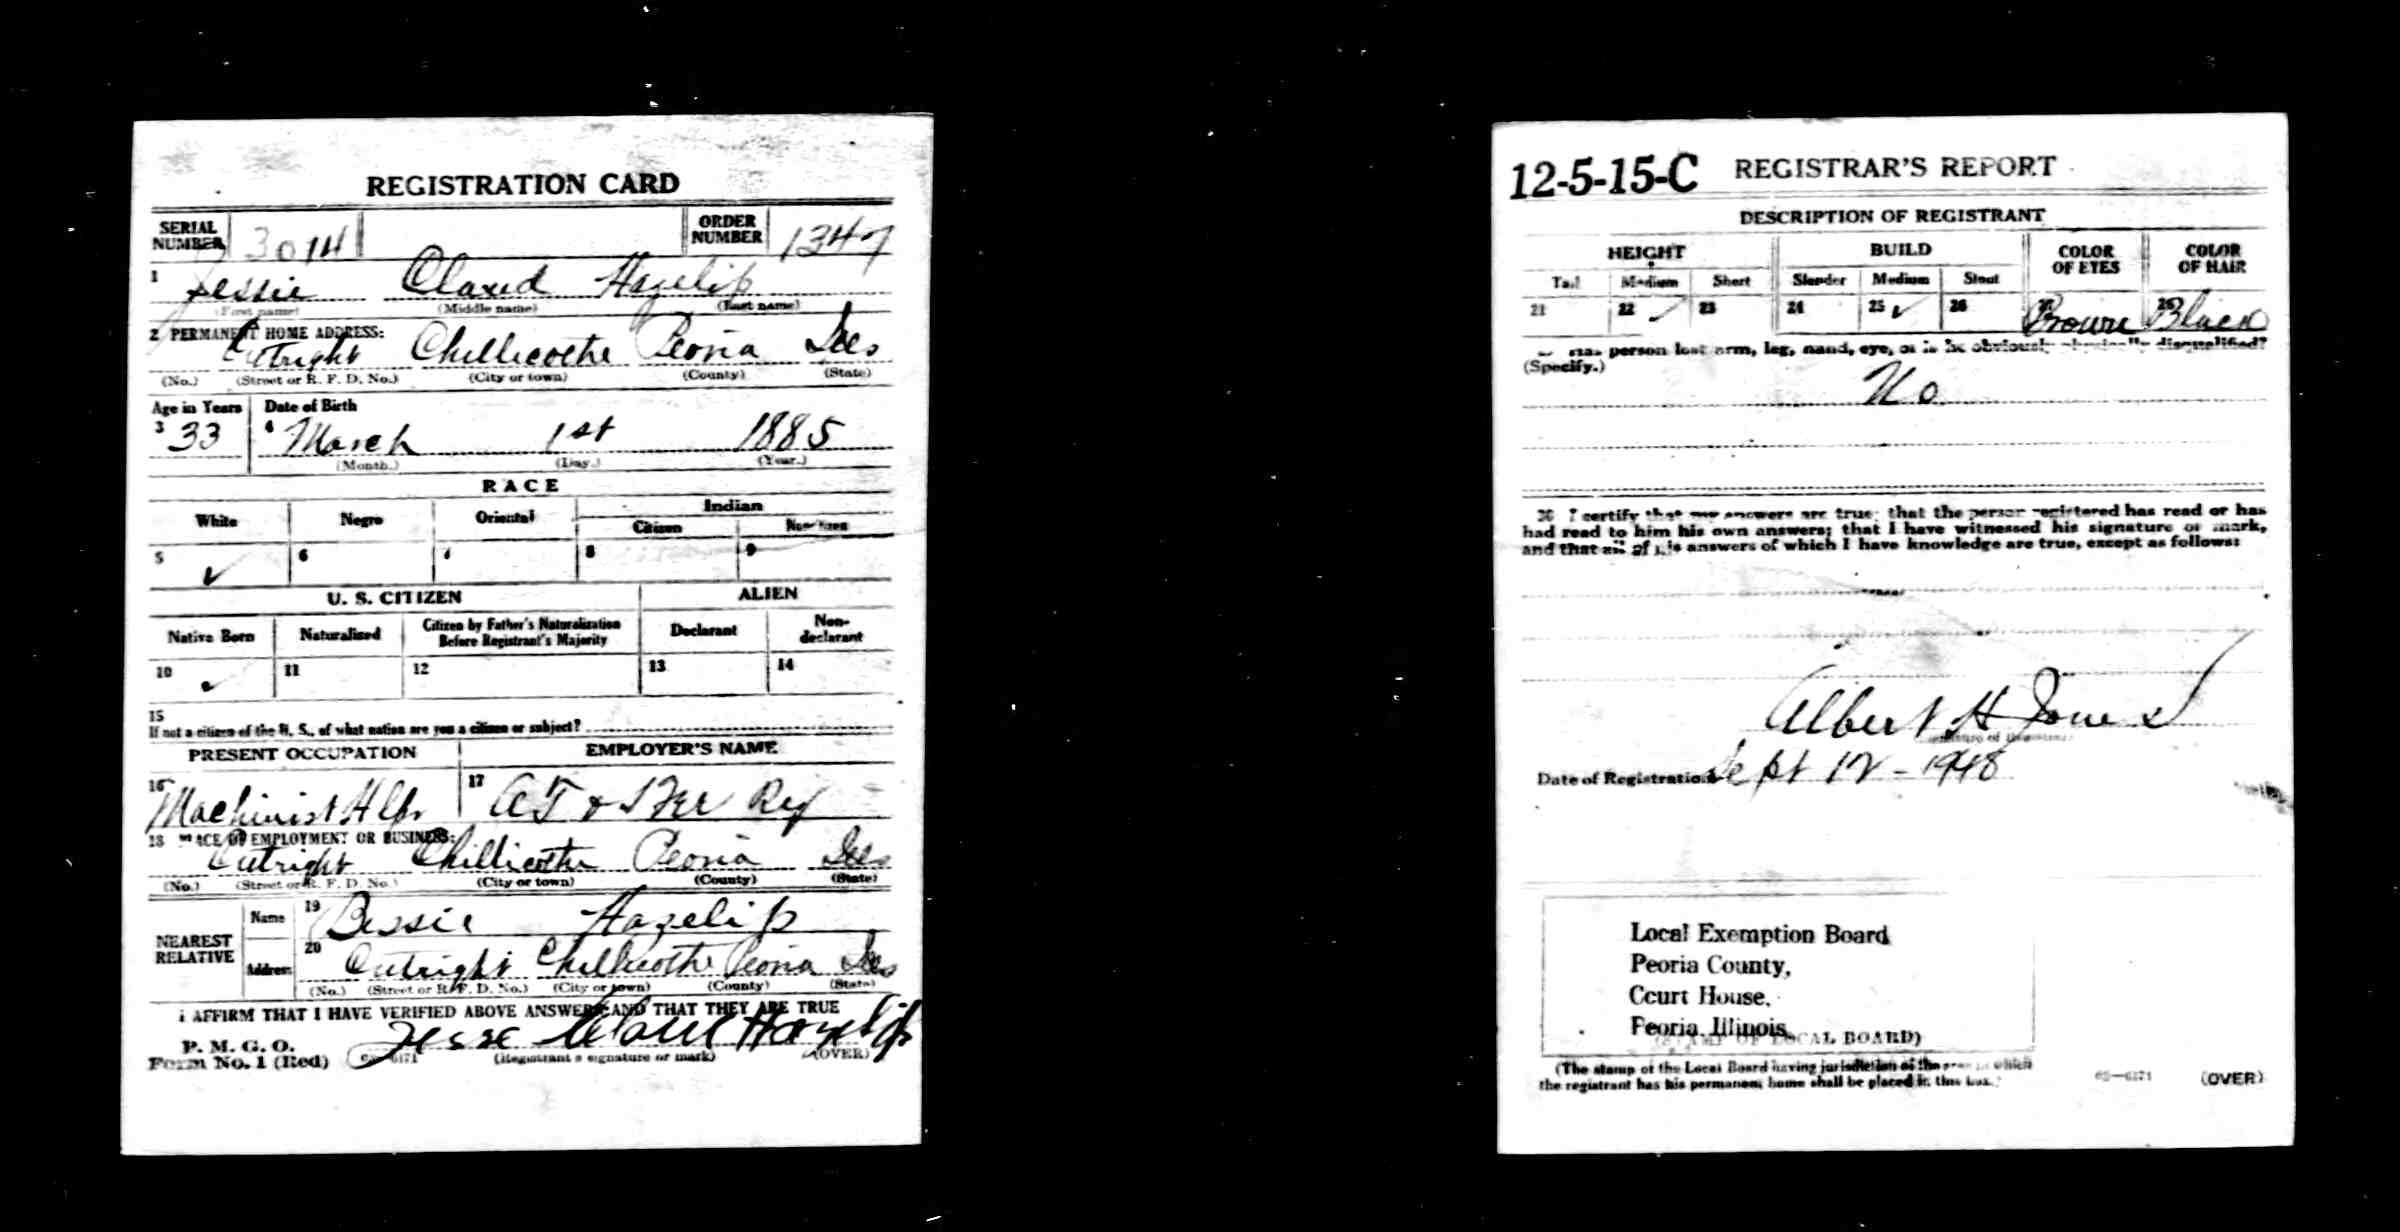 REGISTRATION CARD
SERIAL NUMBER 3014 ORDER NUMBER 1347
1 Jessie Claud Hazelip
(First name) (Middle name) (Last name)
2 PERMANENT HOME ADDRESS:
Cutright Chillicothe Peoria Ills
(No.) (Street or R. F. D. No.) (City or town) (County) (State)
Age in Years Date of Birth
3 33 4 March 1st 1885
(Month.) (Day.) (Year.)
RACE
White Negro Oriental Indian
Citizen Noncitizen
5 ✓ 6 7 8 9
U. S. CITIZEN ALIEN
Native Born Naturalized Citizen by Father's Naturalization Before Registrant's Majority Declarant Non-declarant
10 ✓ 11 12 13 14
15
If not a citizen of the U. S., of what nation are you a citizen or subject?
PRESENT OCCUPATION EMPLOYER'S NAME
16 Machinist Hlpr 17 AT & SFe Ry
18 PLACE OF EMPLOYMENT OR BUSINESS:
Cutright Chillicothe Peoria Ills
(No.) (Street or R. F. D. No.) (City or town) (County) (State)
NEAREST RELATIVE
Name 19 Bessie Hazelip
Address 20 Cutright Chillicothe Peoria Ills
(No.) (Street or R. F. D. No.) (City or town) (County) (State)
I AFFIRM THAT I HAVE VERIFIED ABOVE ANSWERS AND THAT THEY ARE TRUE
P. M. G. O.
Form No. 1 (Red) Jesse Claud Hazelip
(Registrant's signature or mark) (OVER)
12-5-15-C REGISTRAR'S REPORT
DESCRIPTION OF REGISTRANT
HEIGHT BUILD COLOR OF EYES COLOR OF HAIR
Tall Medium Short Slender Medium Stout
21 22 ✓ 23 24 25 ✓ 26 27 Brown 28 Black
Has person lost arm, leg, hand, eye, or is he obviously physically disqualified?
(Specify.)
No
30 I certify that my answers are true; that the person registered has read or has
had read to him his own answers; that I have witnessed his signature or mark,
and that all of his answers of which I have knowledge are true, except as follows:
Albert H Jones
Date of Registration Sept 12 - 1918
Local Exemption Board
Peoria County,
Court House,
Peoria, Illinois
(STAMP OF LOCAL BOARD)
(The stamp of the Local Board having jurisdiction of the area in which
the registrant has his permanent home shall be placed in this box.)
03—6171 (OVER)